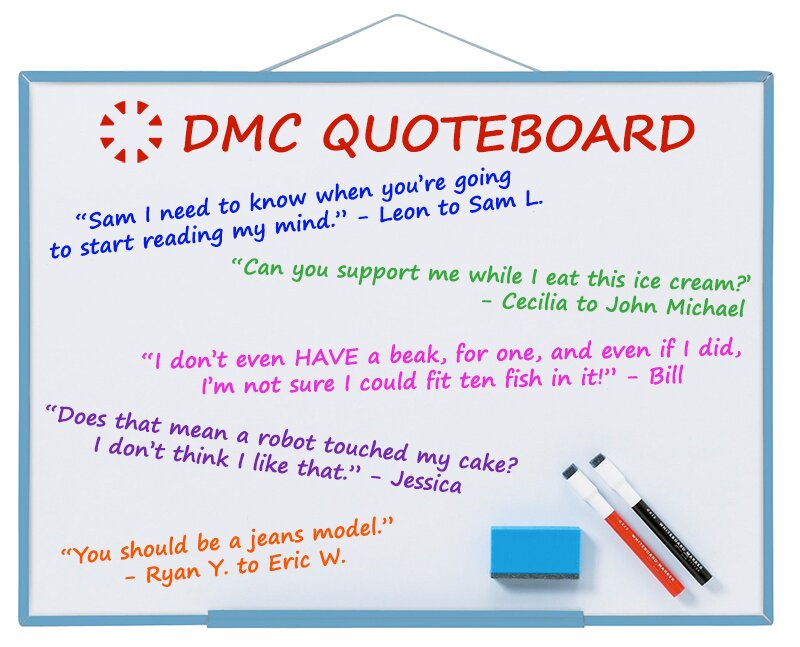 DMC QUOTEBOARD
“Sam I need to know when you’re going
to start reading my mind.” - Leon to Sam L.
“Can you support me while I eat this ice cream?’
- Cecilia to John Michael
“I don’t even HAVE a beak, for one, and even if I did,
I’m not sure I could fit ten fish in it!” - Bill
“Does that mean a robot touched my cake?
I don’t think I like that.” - Jessica
“You should be a jeans model.”
- Ryan Y. to Eric W.
WHITEBOARD MARKER
WHITEBOARD MARKER